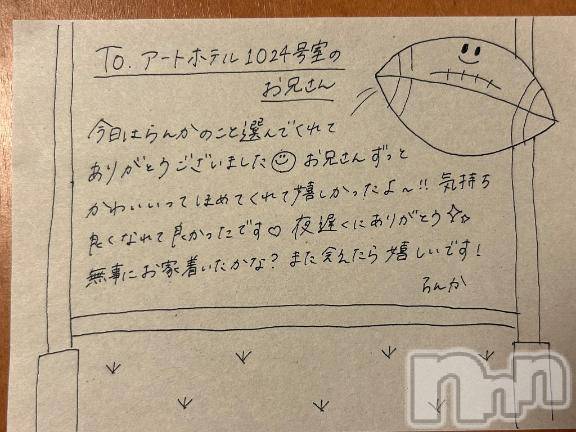 To. アートホテル1024号室の
お兄さん
今日はらんかのこと選んでくれて
ありがとうございました☺ お兄さんずっと
かわいいってほめてくれて嬉しかったよ〜!! 気持ち
良くなれて良かったです♡ 夜遅くにありがとう☆☆
無事にお家着いたかな? また会えたら嬉しいです!
らんか
nnn